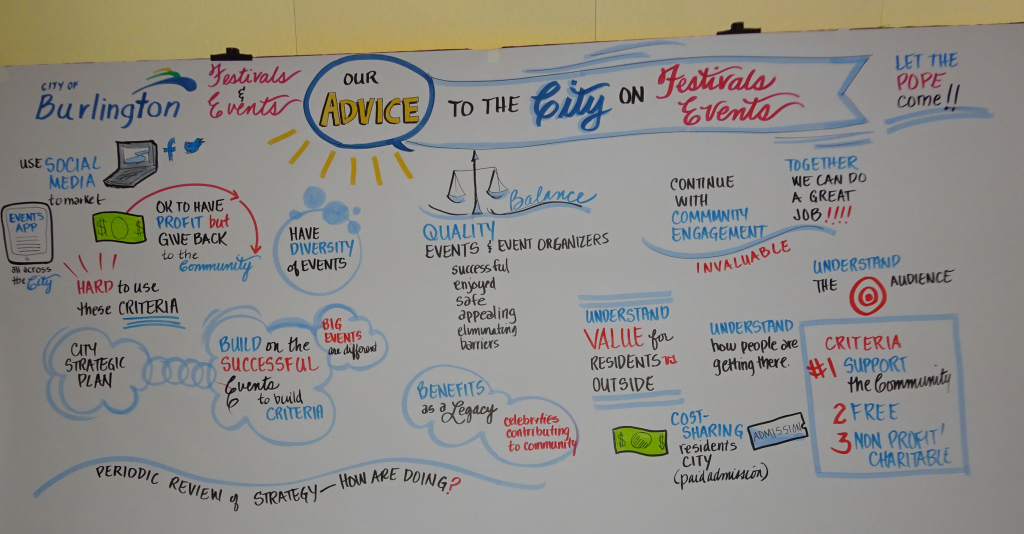 CITY OF
Burlington
Festivals
&
Events
OUR
ADVICE
TO THE City ON
Festivals
Events
LET THE
POPE
come!!
USE SOCIAL
MEDIA
to market
f
EVENTS
APP
all across
the City
OK TO HAVE
PROFIT but
GIVE BACK
to the
Community
HARD to use
these CRITERIA
HAVE
DIVERSITY
of EVENTS
Balance
QUALITY
EVENTS & EVENT ORGANIZERS
successful
enjoyed
safe
appealing
eliminating
barriers
CONTINUE
WITH
COMMUNITY
ENGAGEMENT
INVALUABLE
TOGETHER
WE CAN DO
A GREAT
JOB!!!!
UNDERSTAND
THE AUDIENCE
CITY
STRATEGIC
PLAN
BUILD on the
SUCCESSFUL
Events
to build
CRITERIA
BIG
EVENTS
are different
BENEFITS
as a Legacy
celebrities
contributing
to community
UNDERSTAND
VALUE for
RESIDENTS
OUTSIDE
UNDERSTAND
how people are
getting there.
COST-
SHARING
residents
CITY
(paid admission)
$ $
ADMISSION
CRITERIA
#1 SUPPORT
the Community
2 FREE
3 NON PROFIT/
CHARITABLE
PERIODIC REVIEW of STRATEGY — HOW ARE DOING?